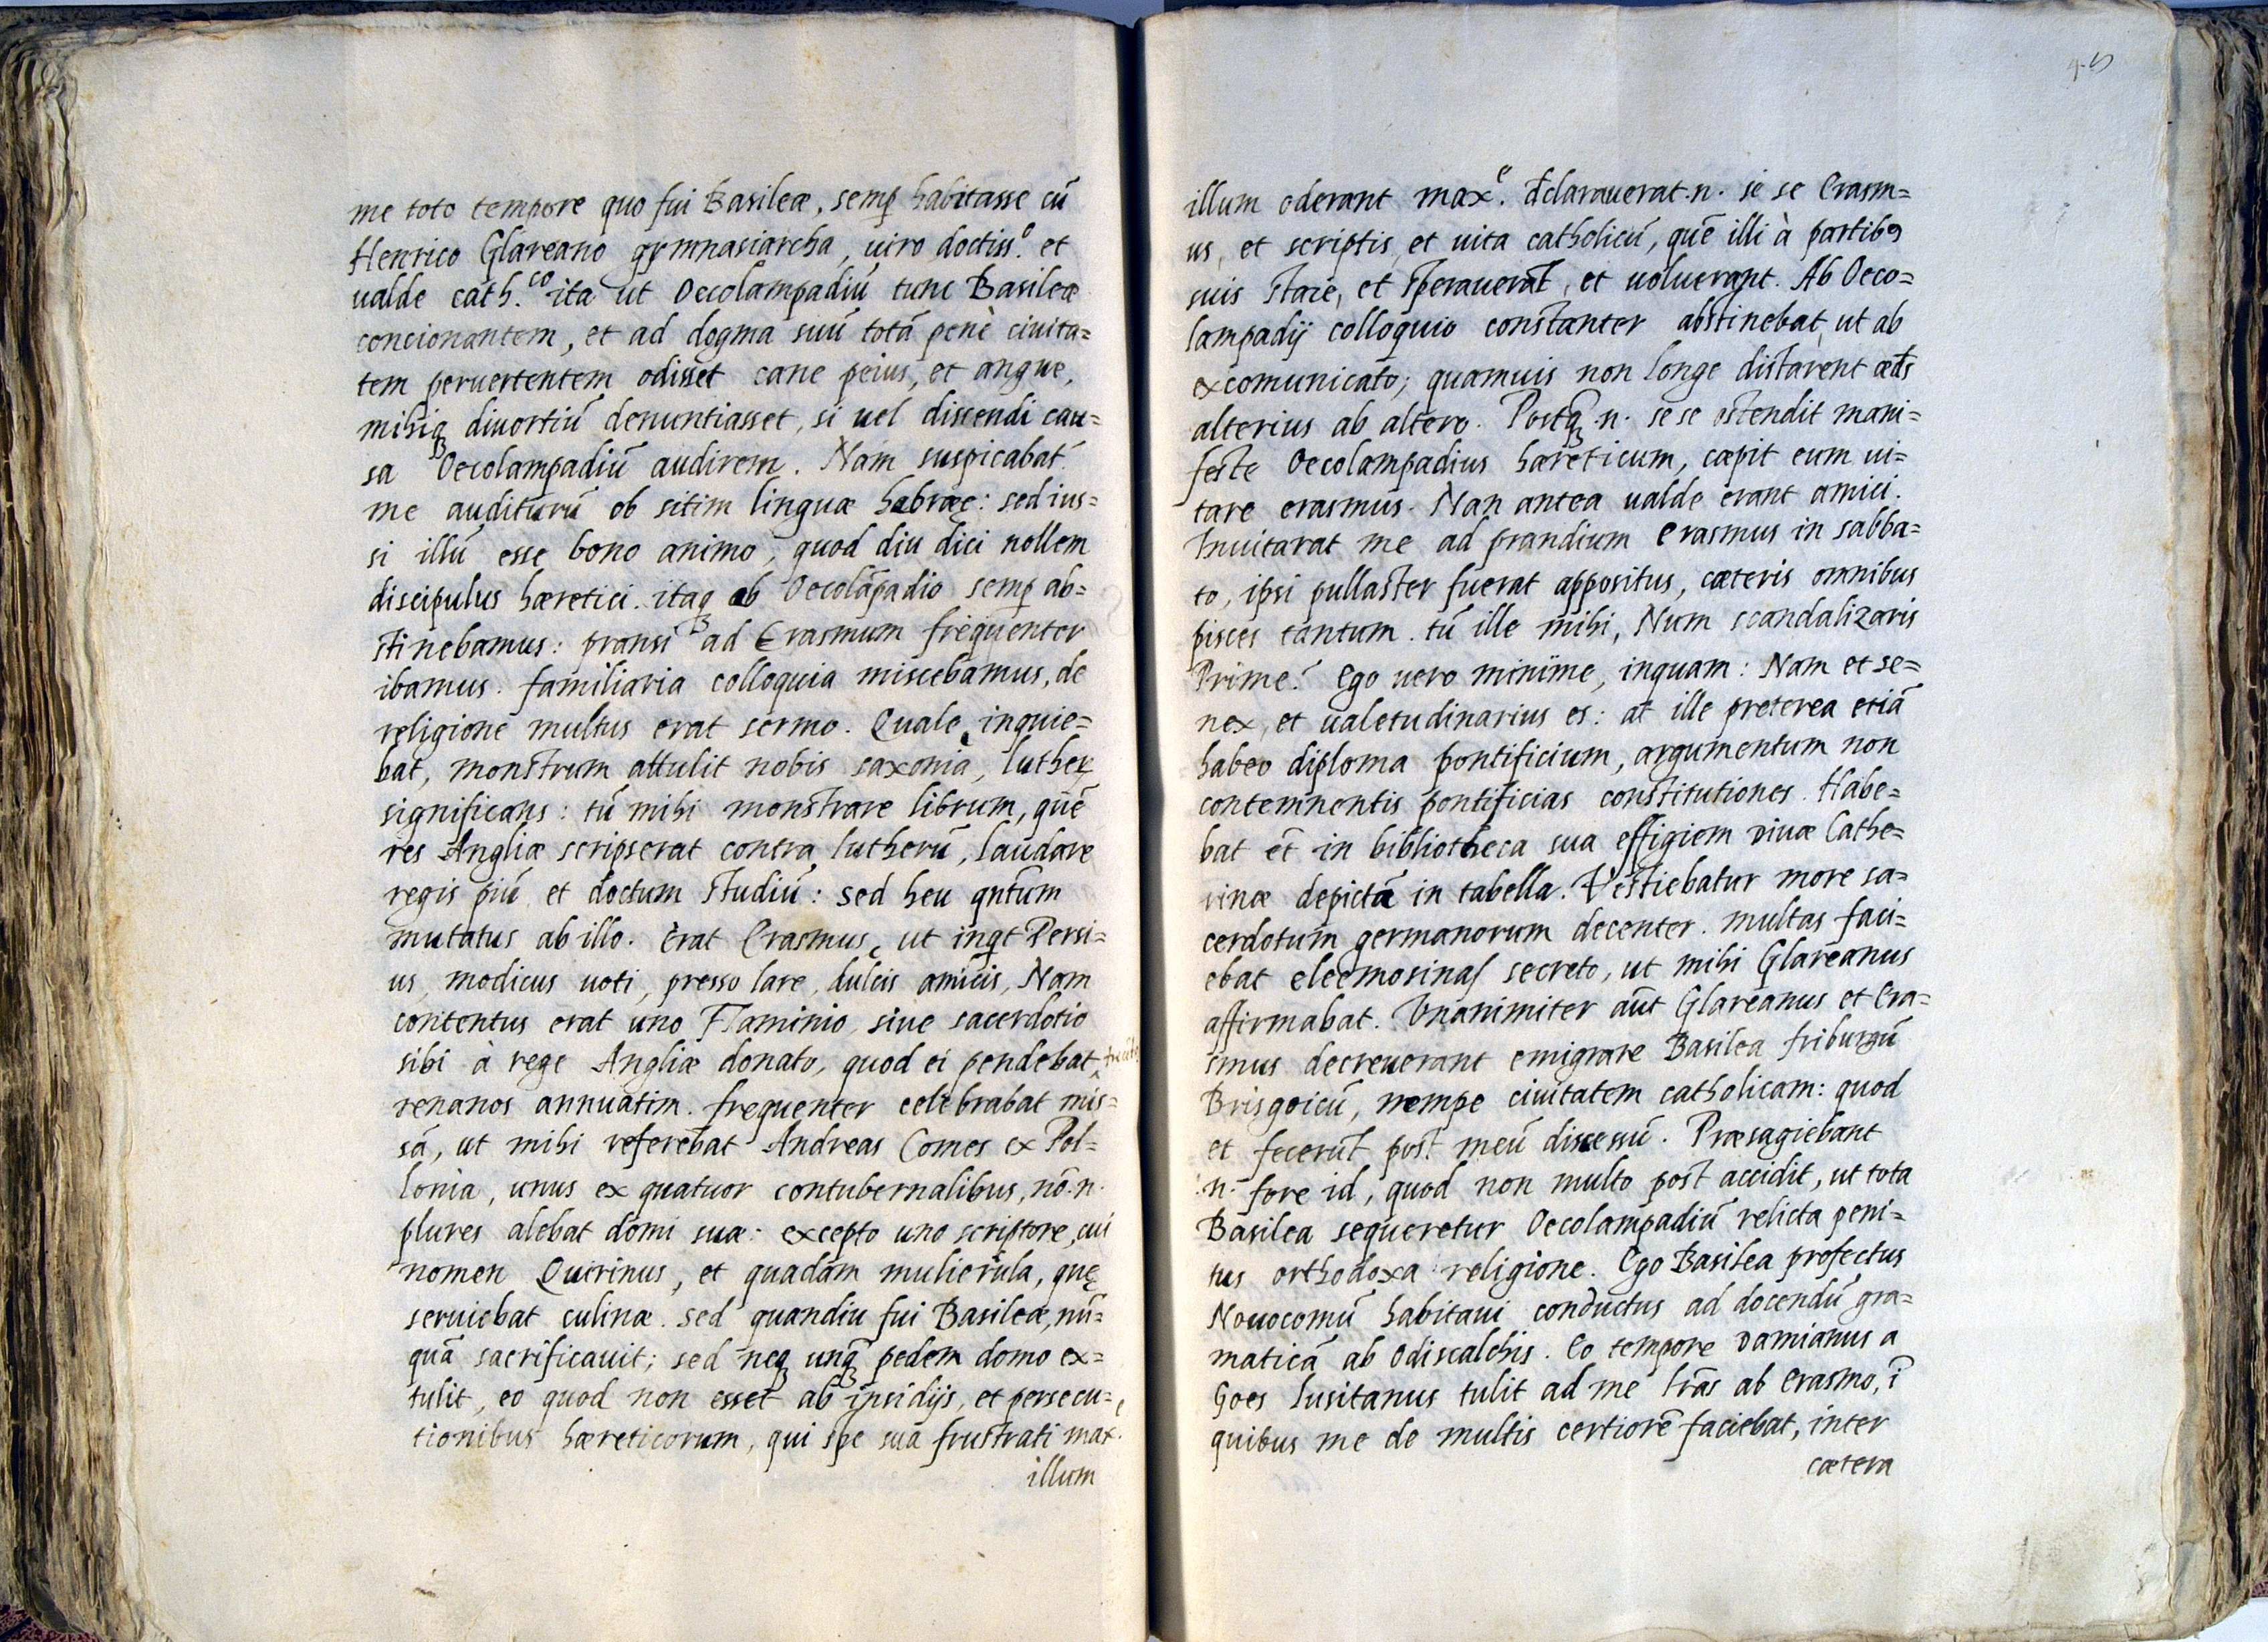 me toto tempore quo fui Basileæ, semp̱ habitasse cũ
Henrico Glareano gymnasiarcha, uiro doctiss.º et
ualde cath.co ita ut Oecolampadiũ tunc Basileæ
concionantem, et ad dogma suũ totã penè ciuita=
tem peruertentem odisset cane peius, et angue,
mihiq̃ diuortiũ denuntiasset, si uel dissendi cau=
sa Oecolampadiũ audirem. Nam suspicabat̃
me auditurũ ob sitim linguæ hebræę: sed ius=
si illũ esse bono animo, quod diu dici nollem
discipulus hæretici. itaq̃ ab Oecolãpadio semp̱ ab=
stinebamus: pransi ad Erasmum frequenter
ibamus. familiaria colloquia miscebamus, de
religione multus erat sermo. Quale, inquie=
bat, monstrum attulit nobis saxonia, luther
significans: tũ mihi monstrare librum, quẽ
res Angliæ scripserat contra lutherũ, laudare
regis piũ et doctum studiũ: sed heu qntũm
mutatus ab illo. Erat Erasmus, ut inqt Persi=
us, modicus uoti, presso lare, dulcis amicis, Nam
contentus erat uno Flaminio, siue sacerdotio
sibi à rege Angliæ donato, quod ei pendebat,
renanos annuatim. frequenter celebrabat mis=
sã, ut mihi referebat Andreas Comes ex Pol=
lonia, unus ex quatuor contubernalibus, nõ.n.
plures alebat domi suæ: excepto uno scriptore, cui
nomen Quirinus, et quadam mulierula, quę
seruiebat culinæ. sed quandiu fui Basileæ, nũ=
quã sacrificauit; sed neq̃ unq̃ pedem domo ex=
tulit, eo quod non esset ab insidijs, et persecu=
tionibus hæreticorum, qui spe sua frustrati max.e
illum
45
illum oderant max.e declarauerat.n. se se Erasm=
us, et scriptis, et uita catholicũ, quẽ illi à partibꝯ
suis stare, et sperauerãt, et uoluerant. Ab Oeco=
lampadij colloquio constanter abstinebat, ut ab
excomunicato; quamuis non longe distarent æds
alterius ab altero. Postq̃.n. se se ostendit mani=
feste Oecolampadius hæreticum, cæpit eum ui=
tare erasmus. Nan antea ualde erant amici.
Inuitarat me ad prandium erasmus in sabba=
to, ipsi pullaster fuerat appositus, cæteris omnibus
pisces tantum. tũ ille mihi, Num scandalizaris
Prime? Ego uero minime, inquam: Nam et se=
nex, et ualetudinarius es: at ille preterea etiã
habeo diploma pontificium, argumentum non
contemnentis pontificias constitutiones. Habe=
bat et̃ in bibliotheca sua effigiem diuæ Cathe=
rinæ depictã in tabella. Vestiebatur more sa=
cerdotum germanorum decenter. multas faci=
ebat eleemosinas secreto, ut mihi Glareanus
affirmabat. Vnanimiter aũt Glareanus et Era=
smus decreuerant emigrare Basilea friburgũ
Brisgoicũ, nempe ciuitatem catholicam: quod
et fecerũt post meũ discessũ. Præsagiebant
.n. fore id, quod non multo post accidit, ut tota
Basilea sequeretur Oecolampadiũ relicta peni=
tus orthodoxa religione. Ego Basilea profectus
Nouocomũ habitaui conductus ad docendũ gra=
maticã ab Odiscalchis. Eo tempore Damianus a
Goes lusitanus tulit ad me lr̃as ab Erasmo, ĩ
quibus me de multis certiorẽ faciebat, inter
cætera